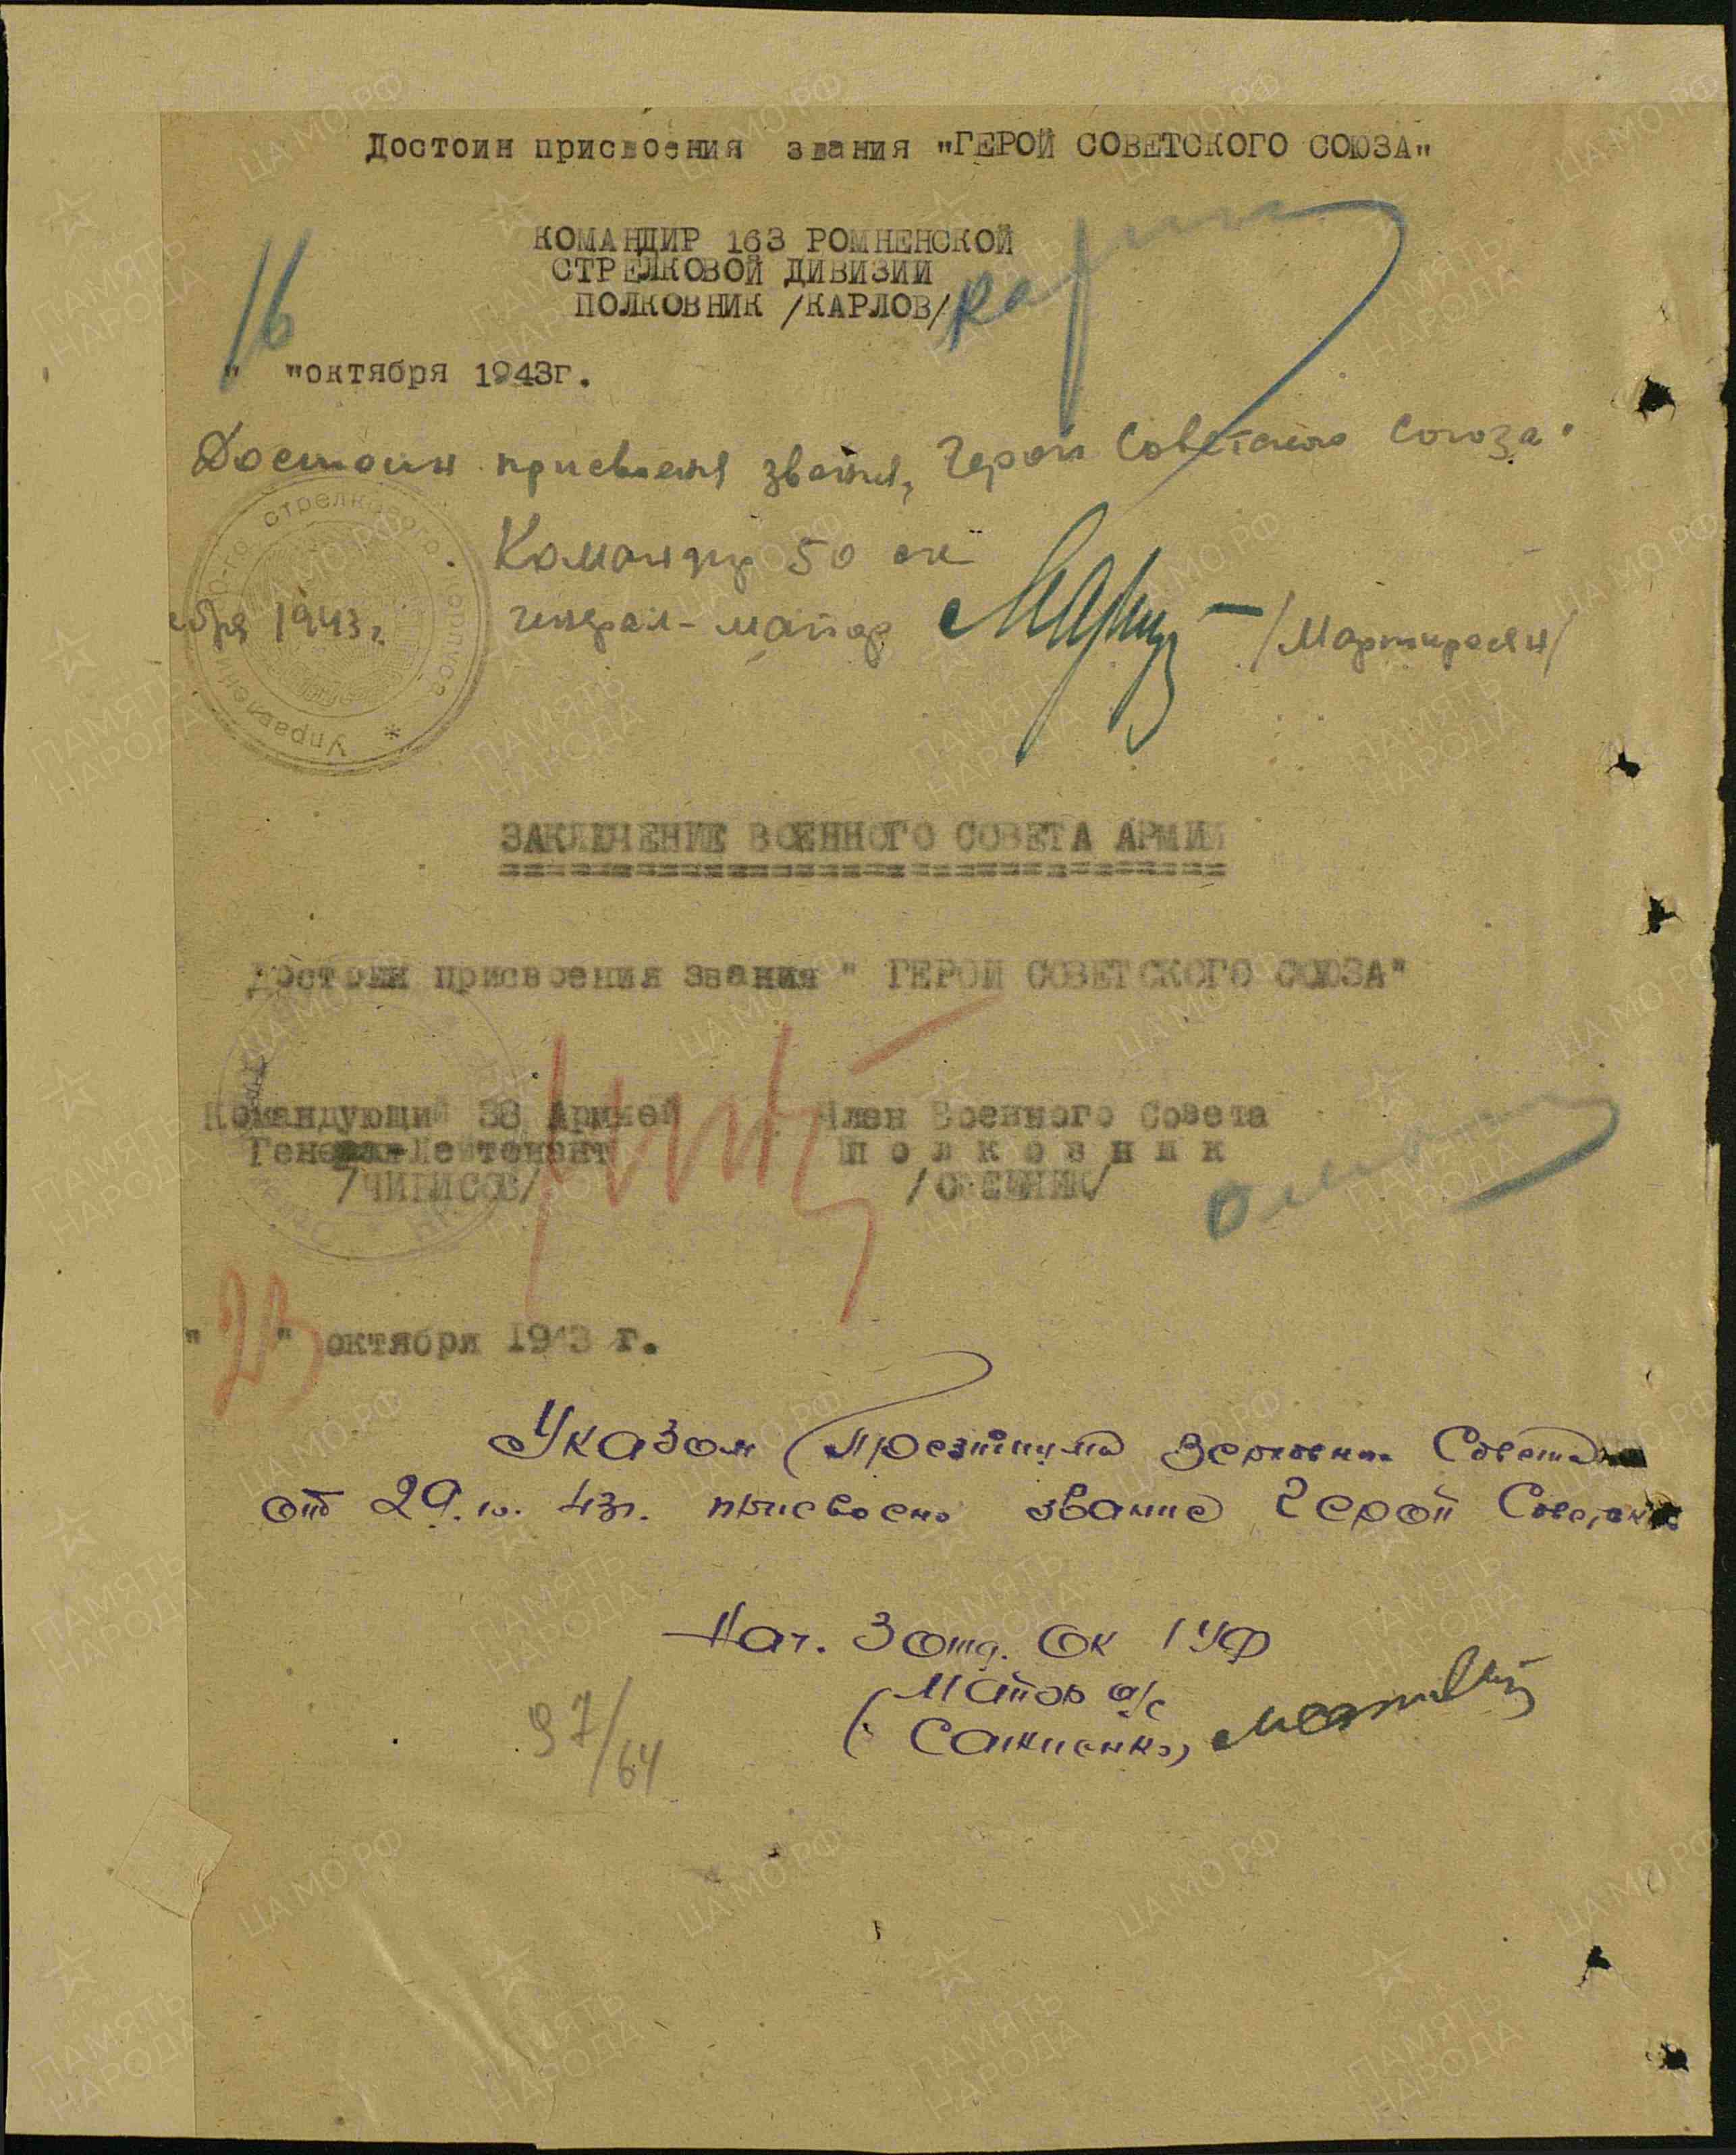 Достоин присвоения звания "ГЕРОЙ СОВЕТСКОГО СОЮЗА"
КОМАНДИР 163 РОМНЕНСКОЙ
СТРЕЛКОВОЙ ДИВИЗИИ
ПОЛКОВНИК /КАРЛОВ/
16
" "октября 1943г.
Достоин присвоения звания „Герой Советского Союза"
Командир 50 ск
ября 1943 г.
генерал-майор
/Мартиросян/
Управление 50-го стрелкового корпуса *
ЗАКЛЮЧЕНИЕ ВОЕННОГО СОВЕТА АРМИИ
Достоин присвоения звания " ГЕРОЙ СОВЕТСКОГО СОЮЗА"
Командующий 38 Армией Член Военного Совета
Генерал-Лейтенант Полковник
/ЧИБИСОВ/
" 23 " октября 1943 г.
Указом Президиума Верховн. Совета
от 29.10.43г. присвоено звание Герой Советск
Нач. 3 отд. ОК 1 УФ
Майор а/с
97/64
ПАМЯТЬ НАРОДА
ЦА МО РФ